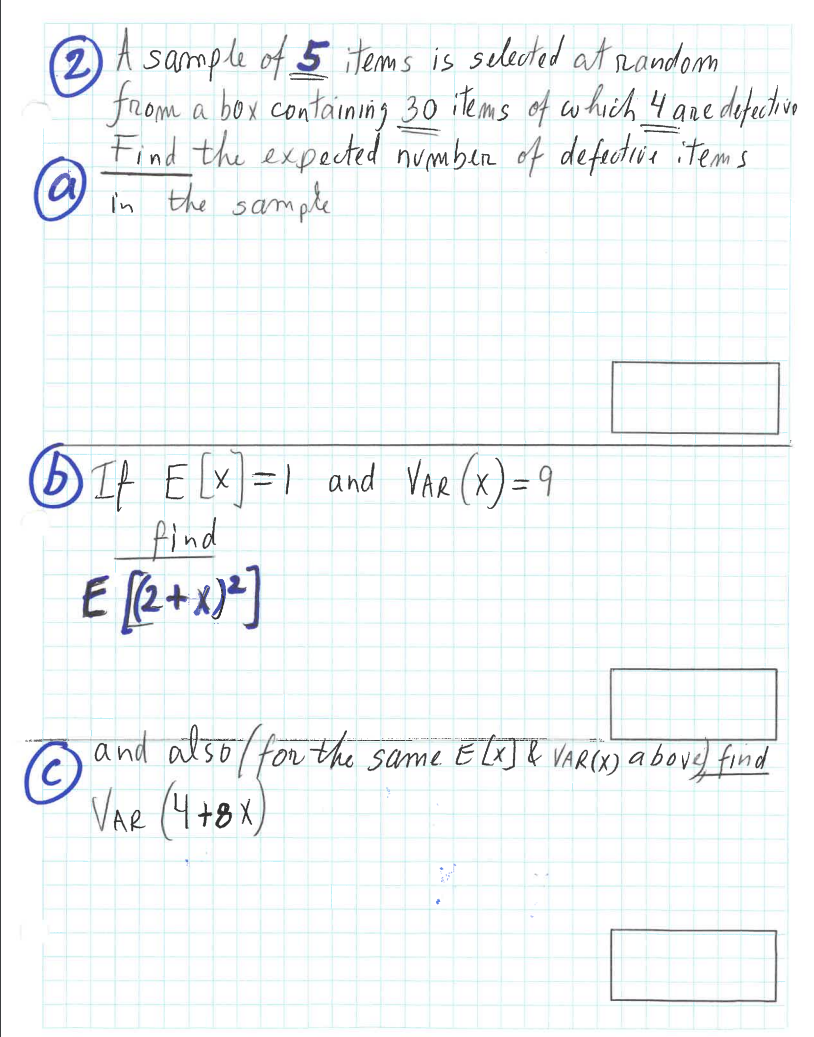 ② A sample of 5 items is selected at random
from a box containing 30 items of which 4 are defective
Find the expected number of defective items
ⓐ in the sample
ⓑ If E[X]=1 and VAR(X)=9
find
E[(2+X)²]
ⓒ and also (for the same E[X] & VAR(X) above) find
VAR(4+8X)